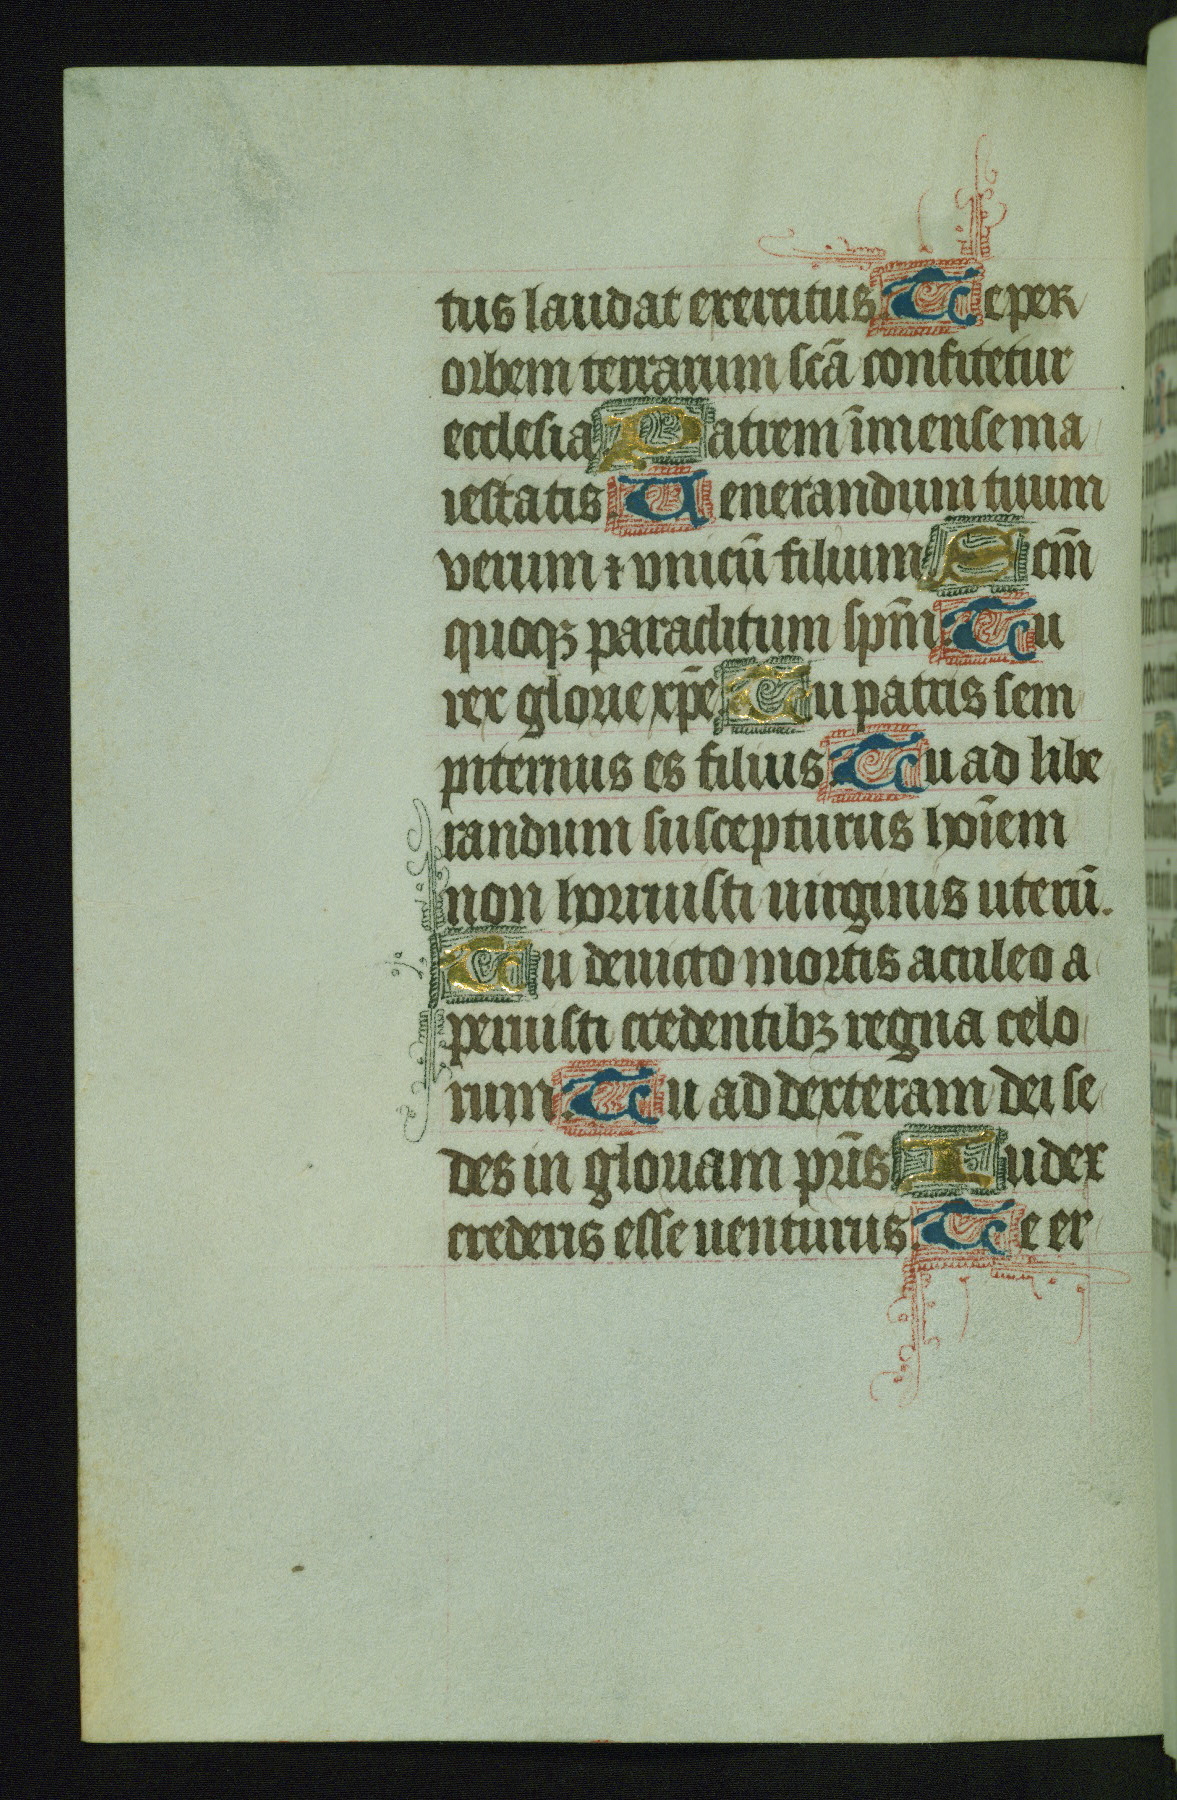 tus laudat exercitus Te per
orbem terrarum scā confitetur
ecclesia Patrem īmense ma
iestatis Uenerandum tuum
verum ⁊ vnicū filium Scm̄
quoqꝫ paraclitum spm̄ Tu
rex glorie xp̄e Tu patris sem
piternus es filius Tu ad libe
randum suscepturus hoīem
non horruisti uirginis uterū.
Tu deuicto mortis aculeo a
peruisti credentibꝫ regna celo
rum Tu ad dexteram dei se
des in gloriam pr̄is Iudex
crederis esse uenturus Te er